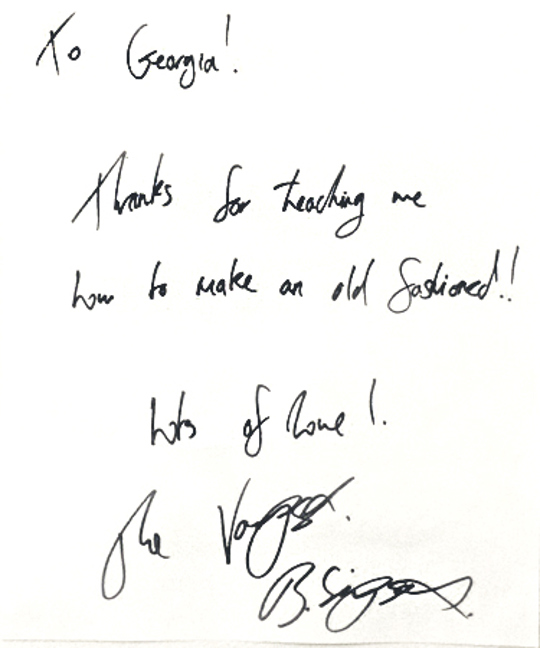 To Georgia!
Thanks for teaching me
how to make an old fashioned!!
lots of love!
The
B.